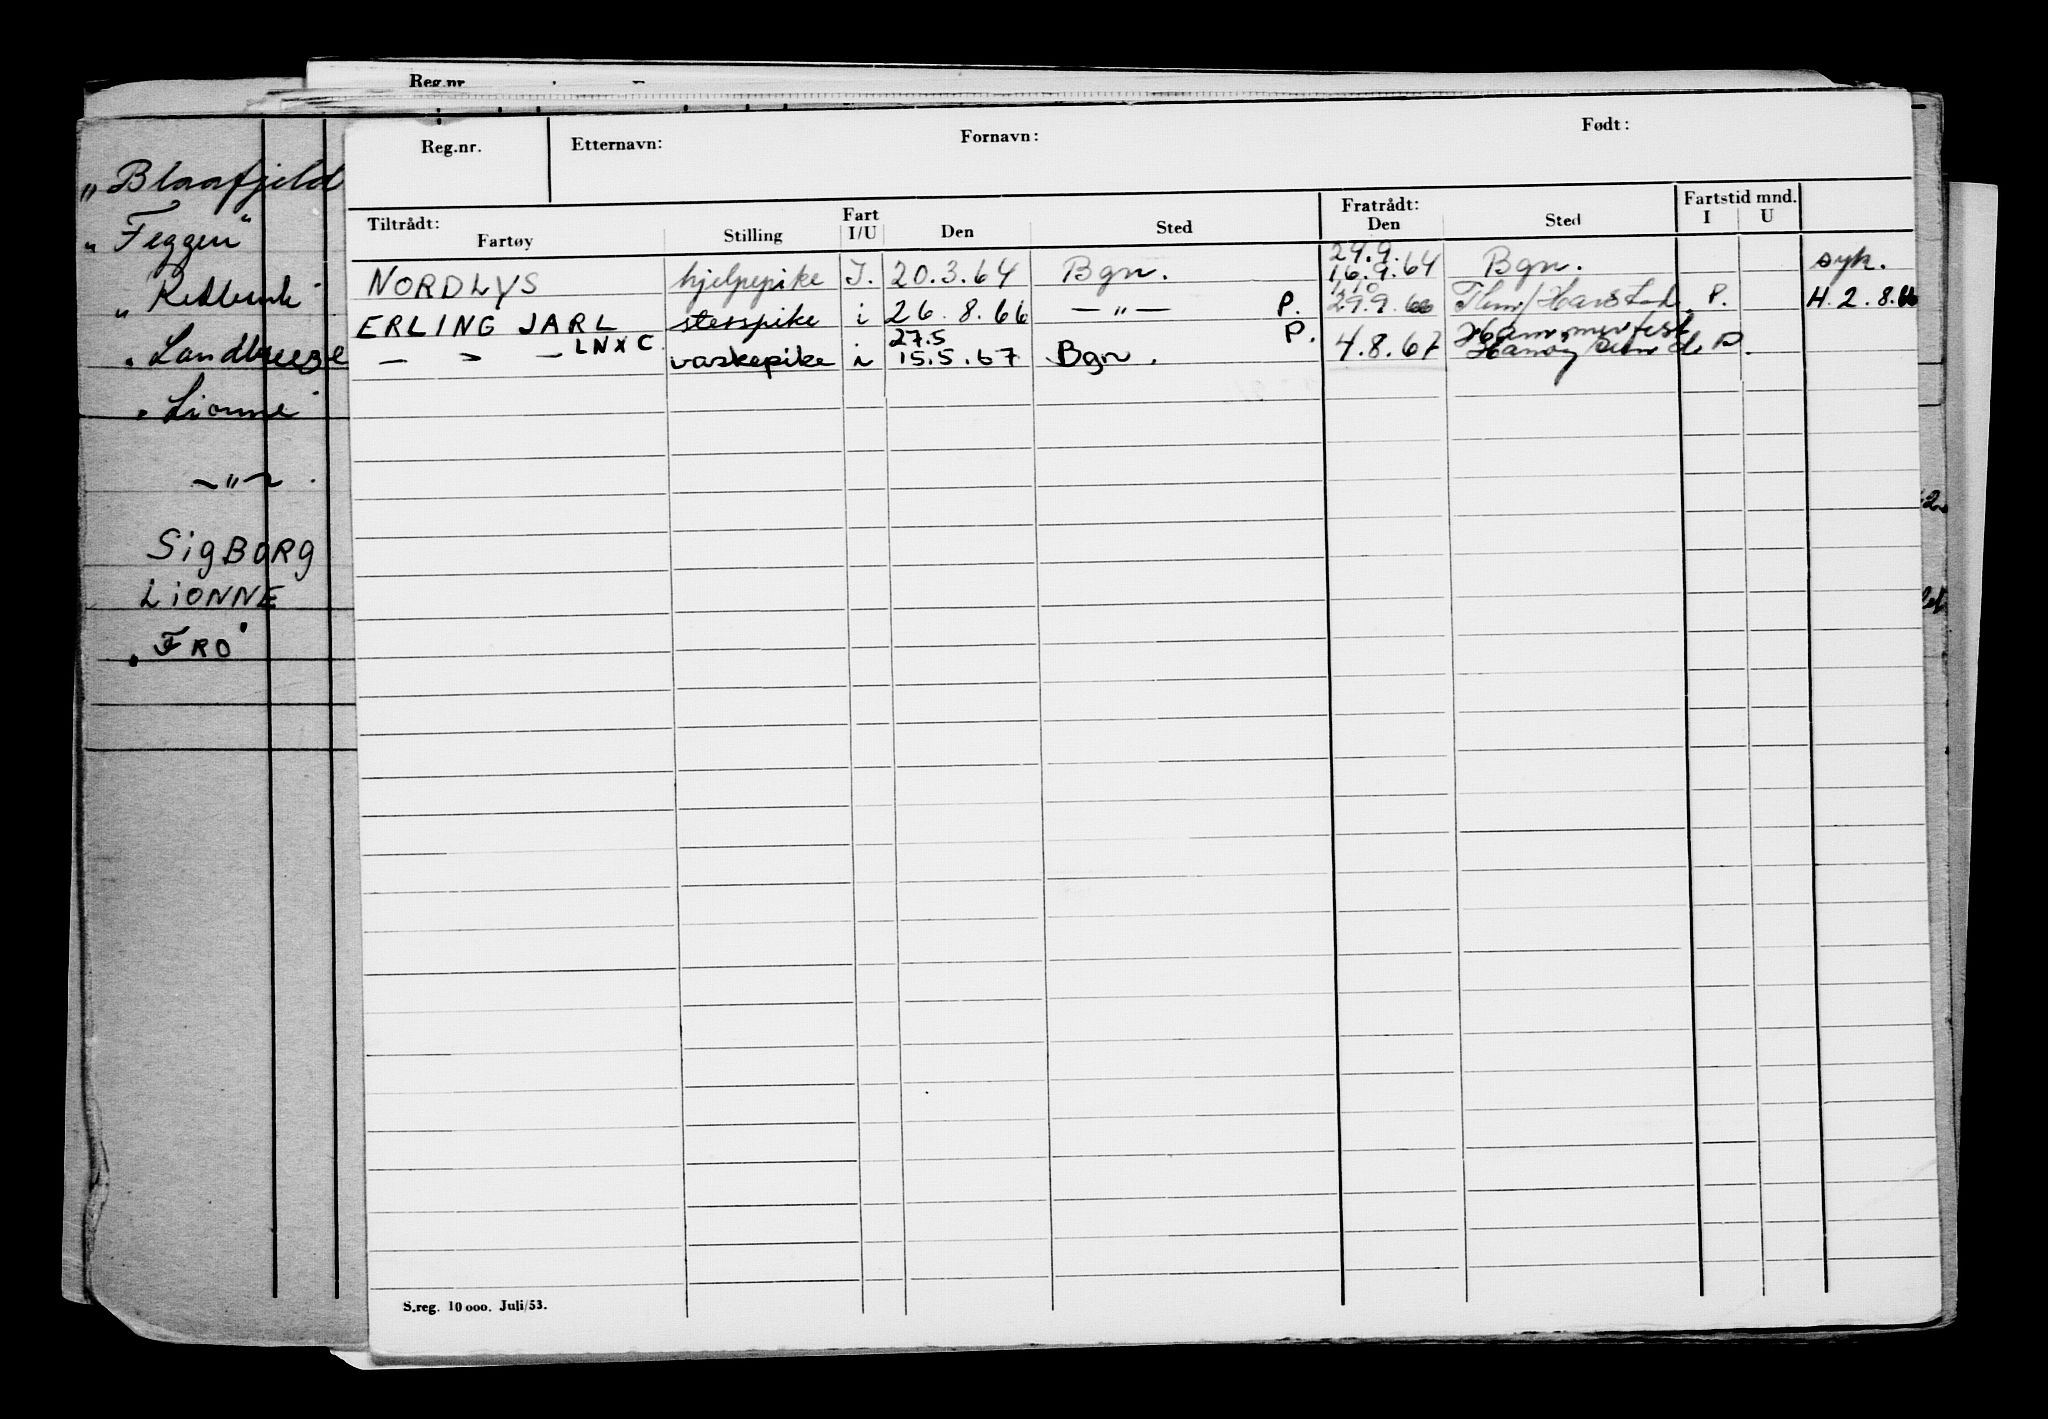 Reg.nr.
Reg.nr. Etternavn: Fornavn: Født:
Tiltrådt: Fartøy Stilling Fart I/U Den Sted Fratrådt: Den Sted Fartstid mnd. I U
29.9.
NORDLYS hjelpepike I. 20.3.64 Bgn. 16.9.64 Bgn. syk.
ERLING JARL sterspike i 26.8.66 — " — P. 29.9.66 P. H. 2.8.66
LNXC 27.5 P. Hammerfest
— " — vaskepike i 15.5.67 Bgn. 4.8.67 P.
S.reg. 10 000. Juli/53.
"Blaafjeld
"Feggen"
"
"Landbreeze
"Lionne"
— " — .
SigBORG
LiONNE
"FRO"